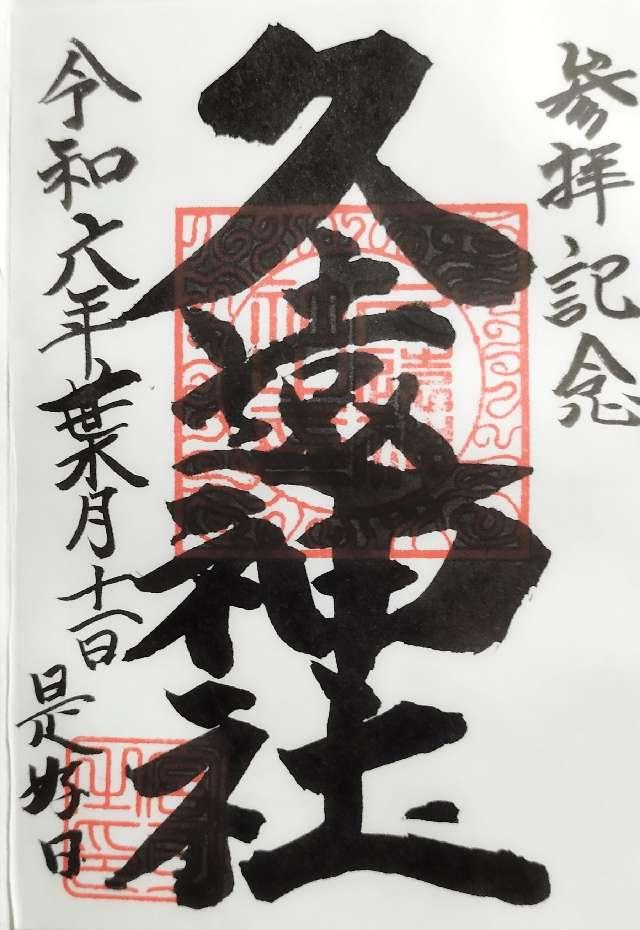 参拝記念
久遠神社
令和六年葉月十一日
日是好日